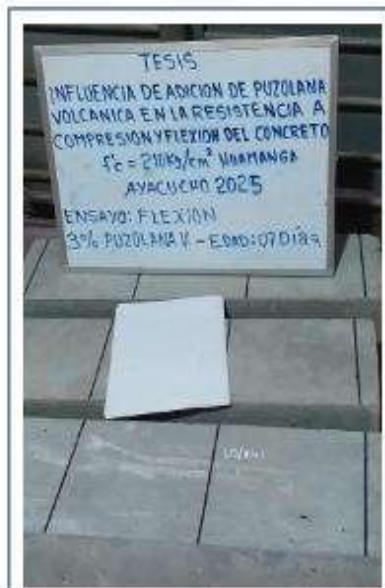 TESIS
INFLUENCIA DE ADICION DE PUZOLANA
VOLCANICA EN LA RESISTENCIA A
COMPRESION Y FLEXION DEL CONCRETO
f'c = 210Kg/cm² HUAMANGA
AYACUCHO 2025
ENSAYO: FLEXION
3% PUZOLANA V - EDAD: 07 Días